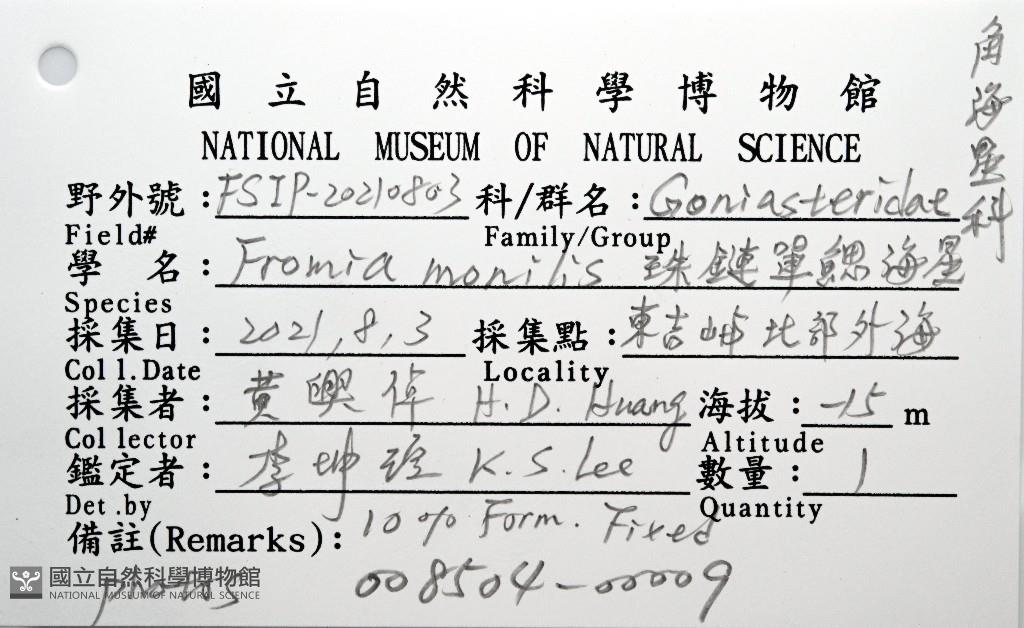 角海星科
國立自然科學博物館
NATIONAL MUSEUM OF NATURAL SCIENCE
野外號：FSIP-20210803 科/群名：Goniasteridae
Field# Family/Group
學名：Fromia monilis 珠鏈單鰓海星
Species
採集日：2021,8,3 採集點：東吉嶼北部外海
Coll.Date Locality
採集者：黃興倬 H.D. Huang 海拔：-15 m
Collector Altitude
鑑定者：李坤瑄 K.S. Lee 數量：1
Det.by Quantity
備註(Remarks)：10% Form. Fixed
008504-00009
國立自然科學博物館
NATIONAL MUSEUM OF NATURAL SCIENCE